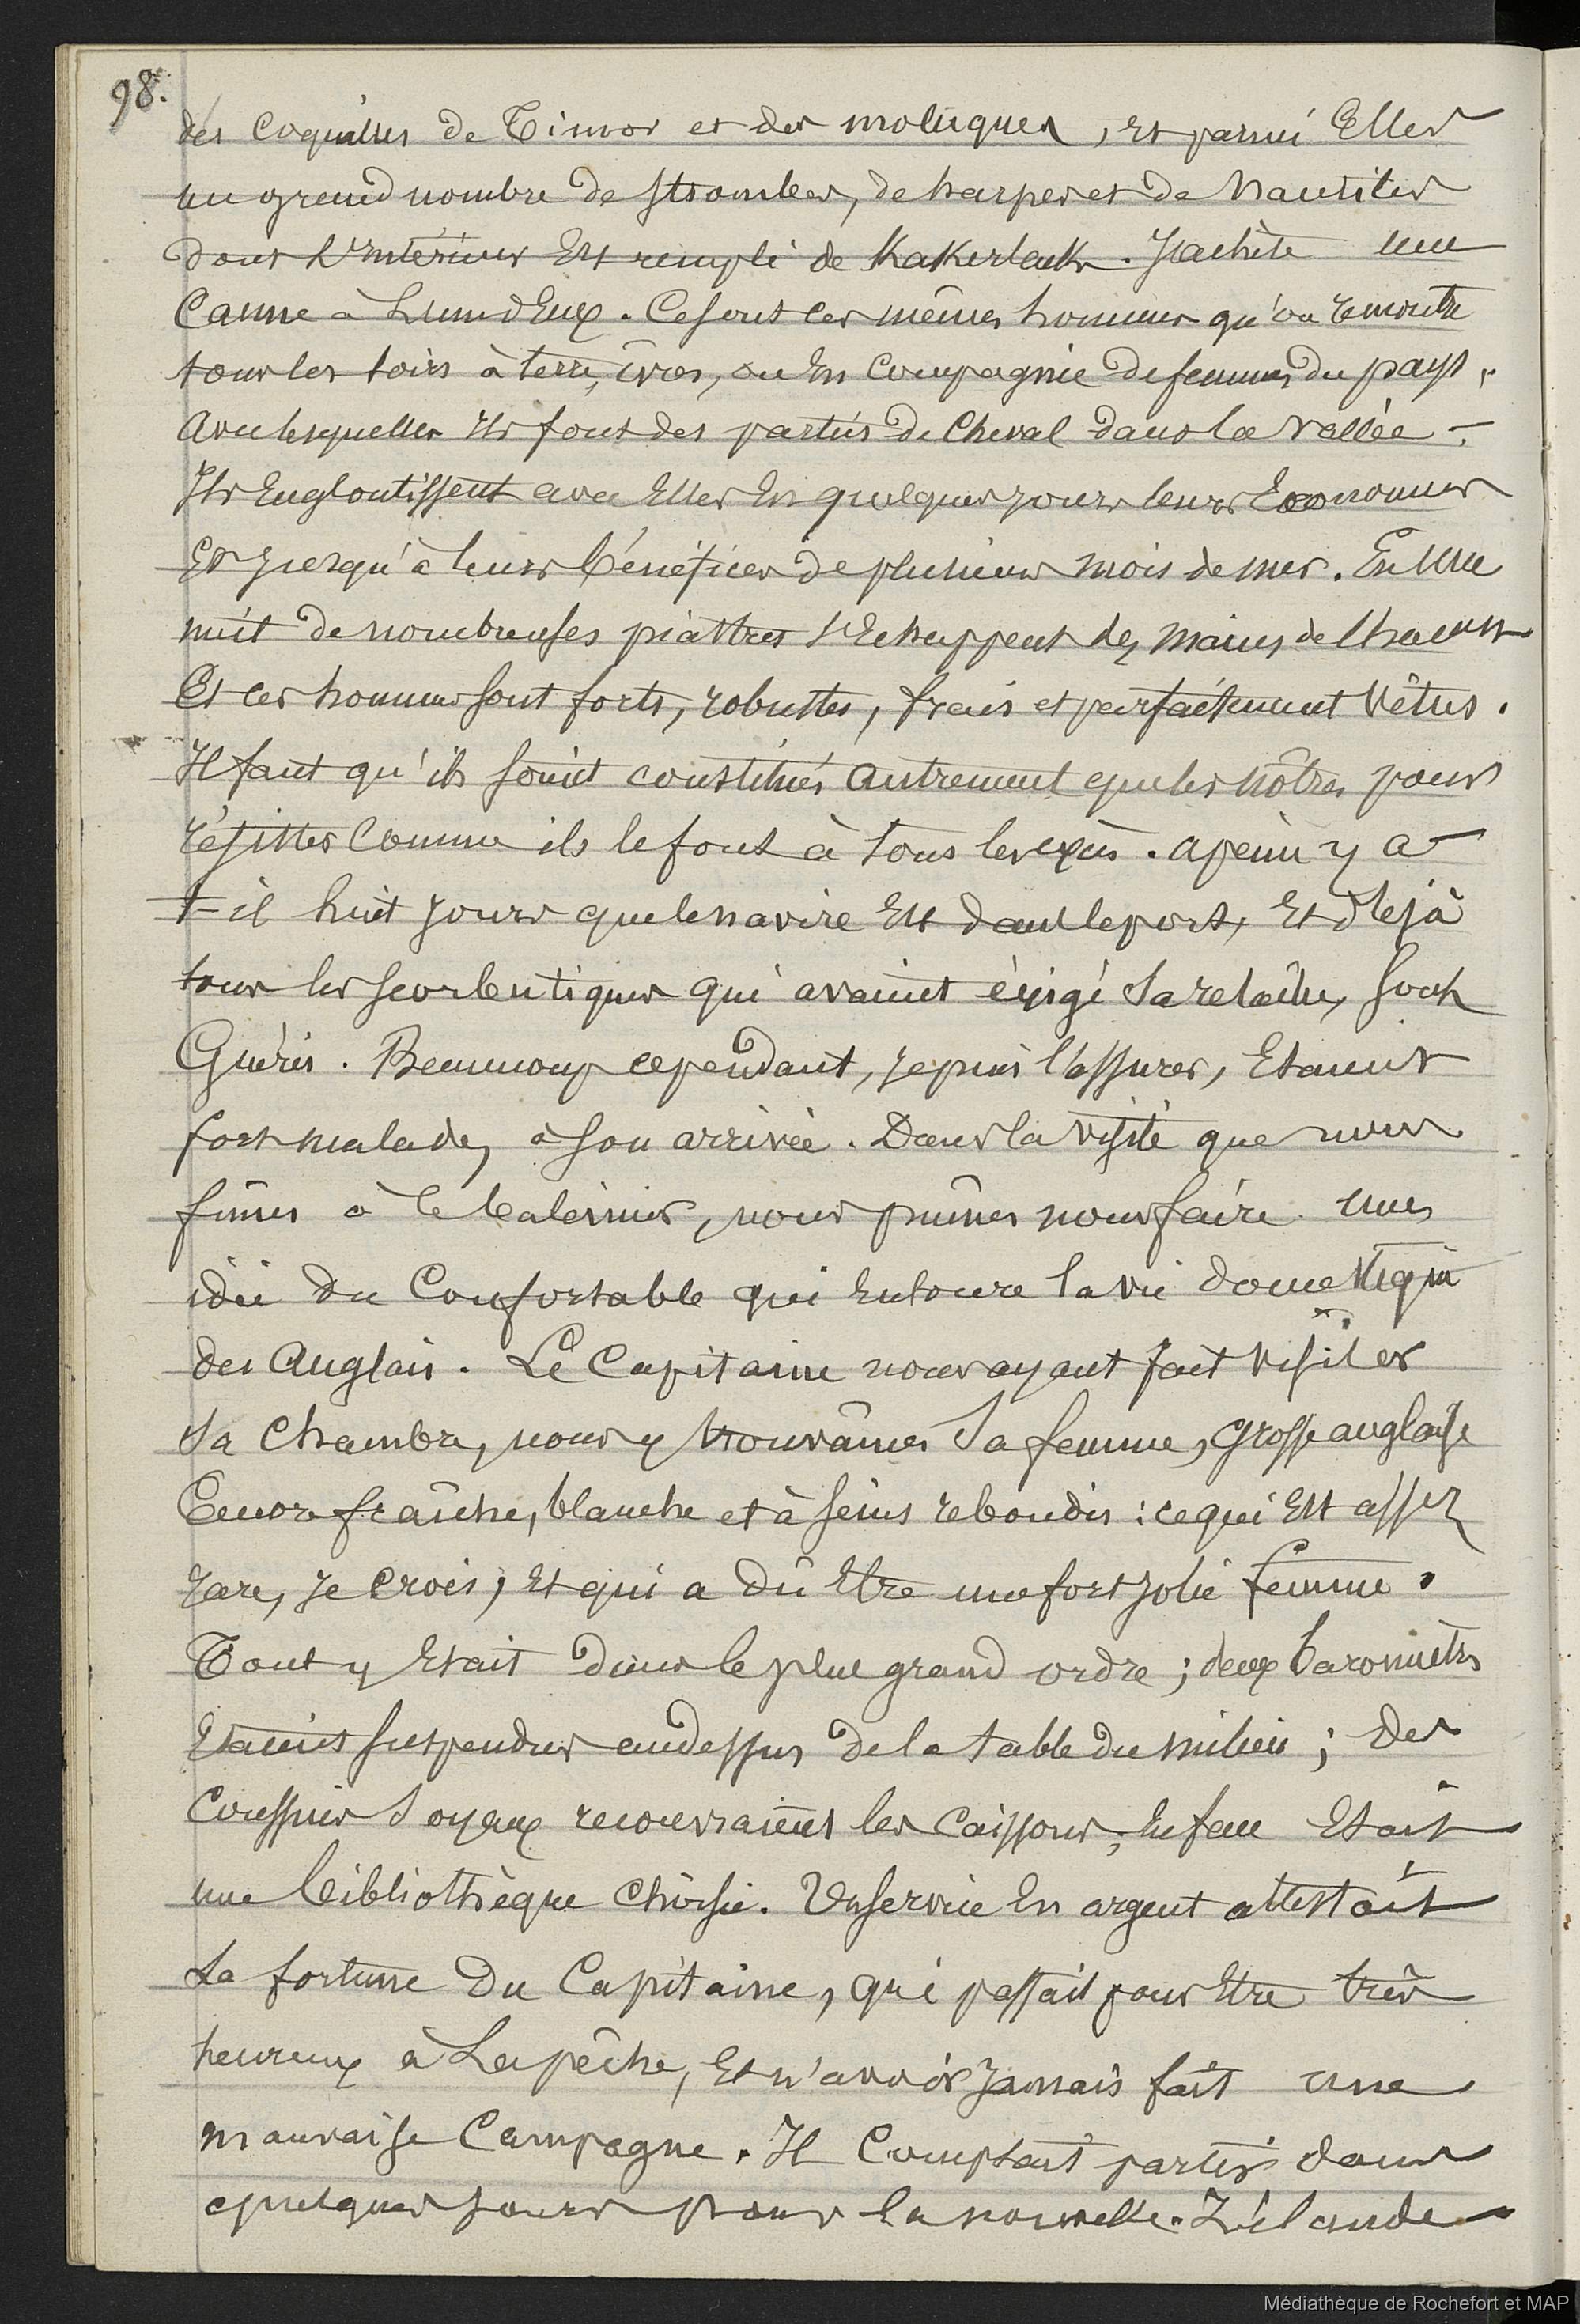 98.
des coquilles de Timor et des moluques, et parmi Elles
un grand nombre de strombes, de harpes et de nautiles
dont l'intérieur Est rempli de Kakerlacks. J'achète une
Canne à L'un d'Eux. Ce sont ces mêmes hommes qu'on rencontre
tous les soirs à terre, ivres, ou En compagnie de femmes du pays,
Avec lesquelles ils font des parties de Cheval dans la vallée.
Ils Engloutissent avec Elles En quelques jours leurs Economies
Et jusqu'à leurs bénéfices de plusieurs mois de mer. En une
nuit de nombreuses piastres s'Echappent des mains de chacun
Et ces hommes sont forts, robustes, frais et parfaitement vêtus.
Il faut qu'ils soient constitués autrement que les nôtres pour
résister comme ils le font à tous les excès. à peine y a-
t-il huit jours que le navire Est dans le port, Et déjà
tous les scorbutiques qui avaient éxigé sa relâche, sont
Guéris. Beaucoup cependant, je puis l'assurer, Etaient
fort malades, à son arrivée. Dans la visite que nous
fîmes à ce baleinier, nous pûmes nous faire une
idée du Confortable qui Entoure la vie domestique
des Anglais. Le Capitaine nous ayant fait visiter
sa chambre, nous y trouvâmes sa femme, grosse anglaise
Encore fraîche, blanche et à seins rebondis: ce qui Est assez
rare, je crois; Et qui a dû Etre une fort jolie femme.
Tout y Etait dans le plus grand ordre; deux baromètres
Etaient suspendus au dessus de la table du milieu; des
coussins soyeux recouvraient les caissons; En face Etait
une bibliothèque choisie. Un service En argent attestait
La fortune du Capitaine, qui passait pour Etre très
heureux à La pêche, Et n'avoir jamais fait une
mauvaise Campagne. Il Comptait partir dans
quelques jours pour la nouvelle-Zélande
Médiathèque de Rochefort et MAP